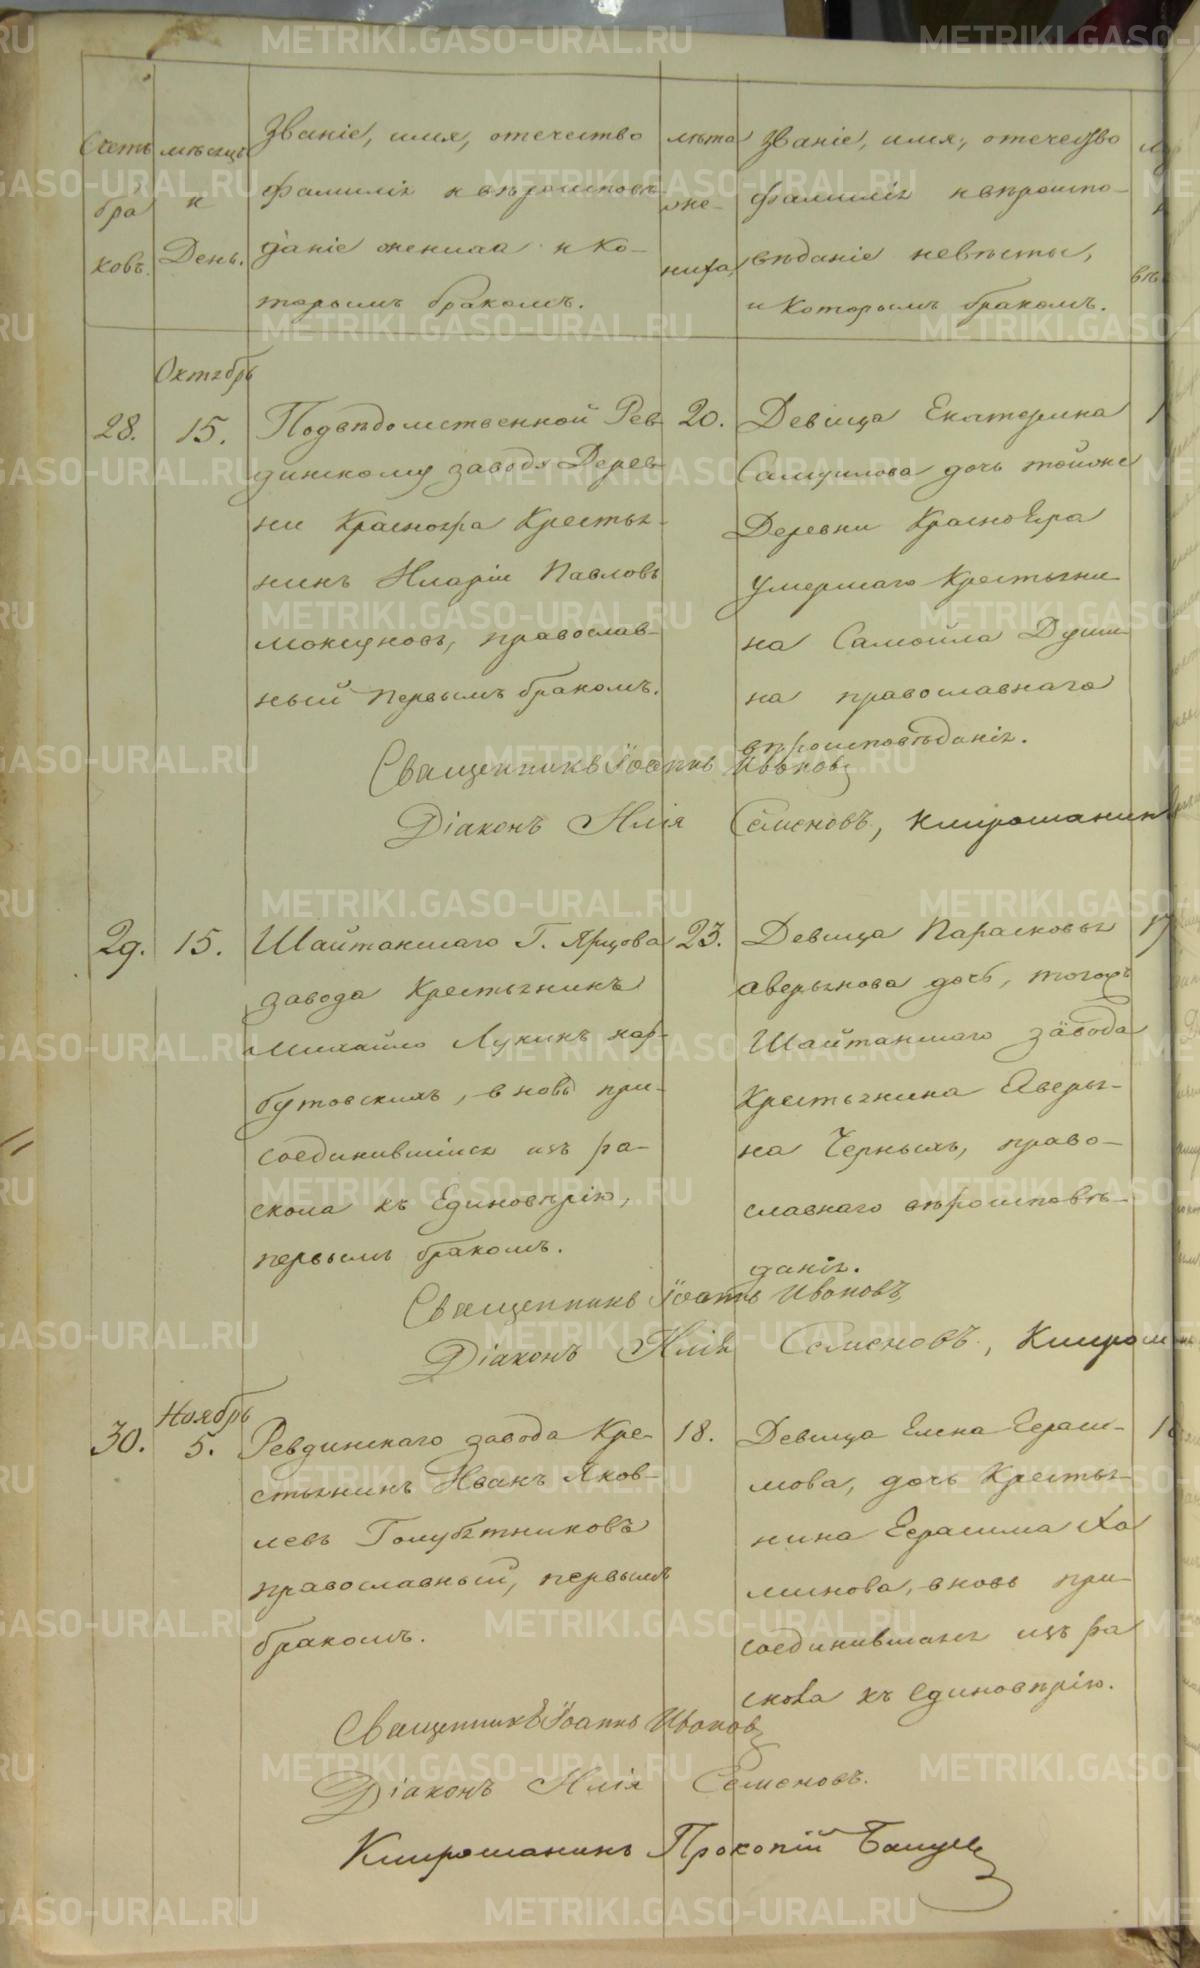 Счетъ бра ковъ.
мѣсяцъ и День.
Званіе, имя, отечество
фамилія и вѣроисповѣ
даніе жениха и ко-
торымъ бракомъ.
лѣта же- ниха,
Званіе, имя, отечество
фамилія и вѣроиспо-
вѣданіе невѣсты,
и которымъ бракомъ.
Октябрь
28.
15.
Подвѣдомственной Рев-
динскому заводу Дерев-
ни Краснояра Крестья-
нинъ Иларіи Павловъ
Мокеуновъ, православ-
ный первымъ бракомъ.
20.
Девица Екатерина
Самуилова дочь тойже
Деревни Краснояра
умершаго Крестьяни-
на Самойла Души-
на православнаго
вѣроисповѣданія.
Священникъ Іоаннъ Ивановъ
Діаконъ Илія Семеновъ,
29.
15.
Шайтанскаго Г. Ярцова
завода Крестьянинъ
Михайло Лукинъ Нар-
бутовскихъ, вновь при-
соединившійся изъ ра-
скола къ Единовѣрію,
первымъ бракомъ.
23.
Девица Парасковья
Аверьянова дочь, тогожъ
Шайтанскаго завода
Крестьянина Аверья-
на Черныхъ, право-
славнаго вѣроисповѣ-
данія.
17
Священникъ Іоаннъ Ивановъ,
Діаконъ Илія Семеновъ,
Ноябрь
30.
5.
Ревдинскаго завода Кре-
стьянинъ Иванъ Яков-
левъ Голубятниковъ
православный, первымъ
бракомъ.
18.
Девица Елена Гераси-
мова, дочь Крестья-
нина Герасима Ха
минова, вновь при-
соединившаяся изъ ра
скола къ единовѣрію.
Священникъ Іоаннъ Ивановъ
Діаконъ Илія Семеновъ.
Прокопій
METRIKI.GASO-URAL.RU